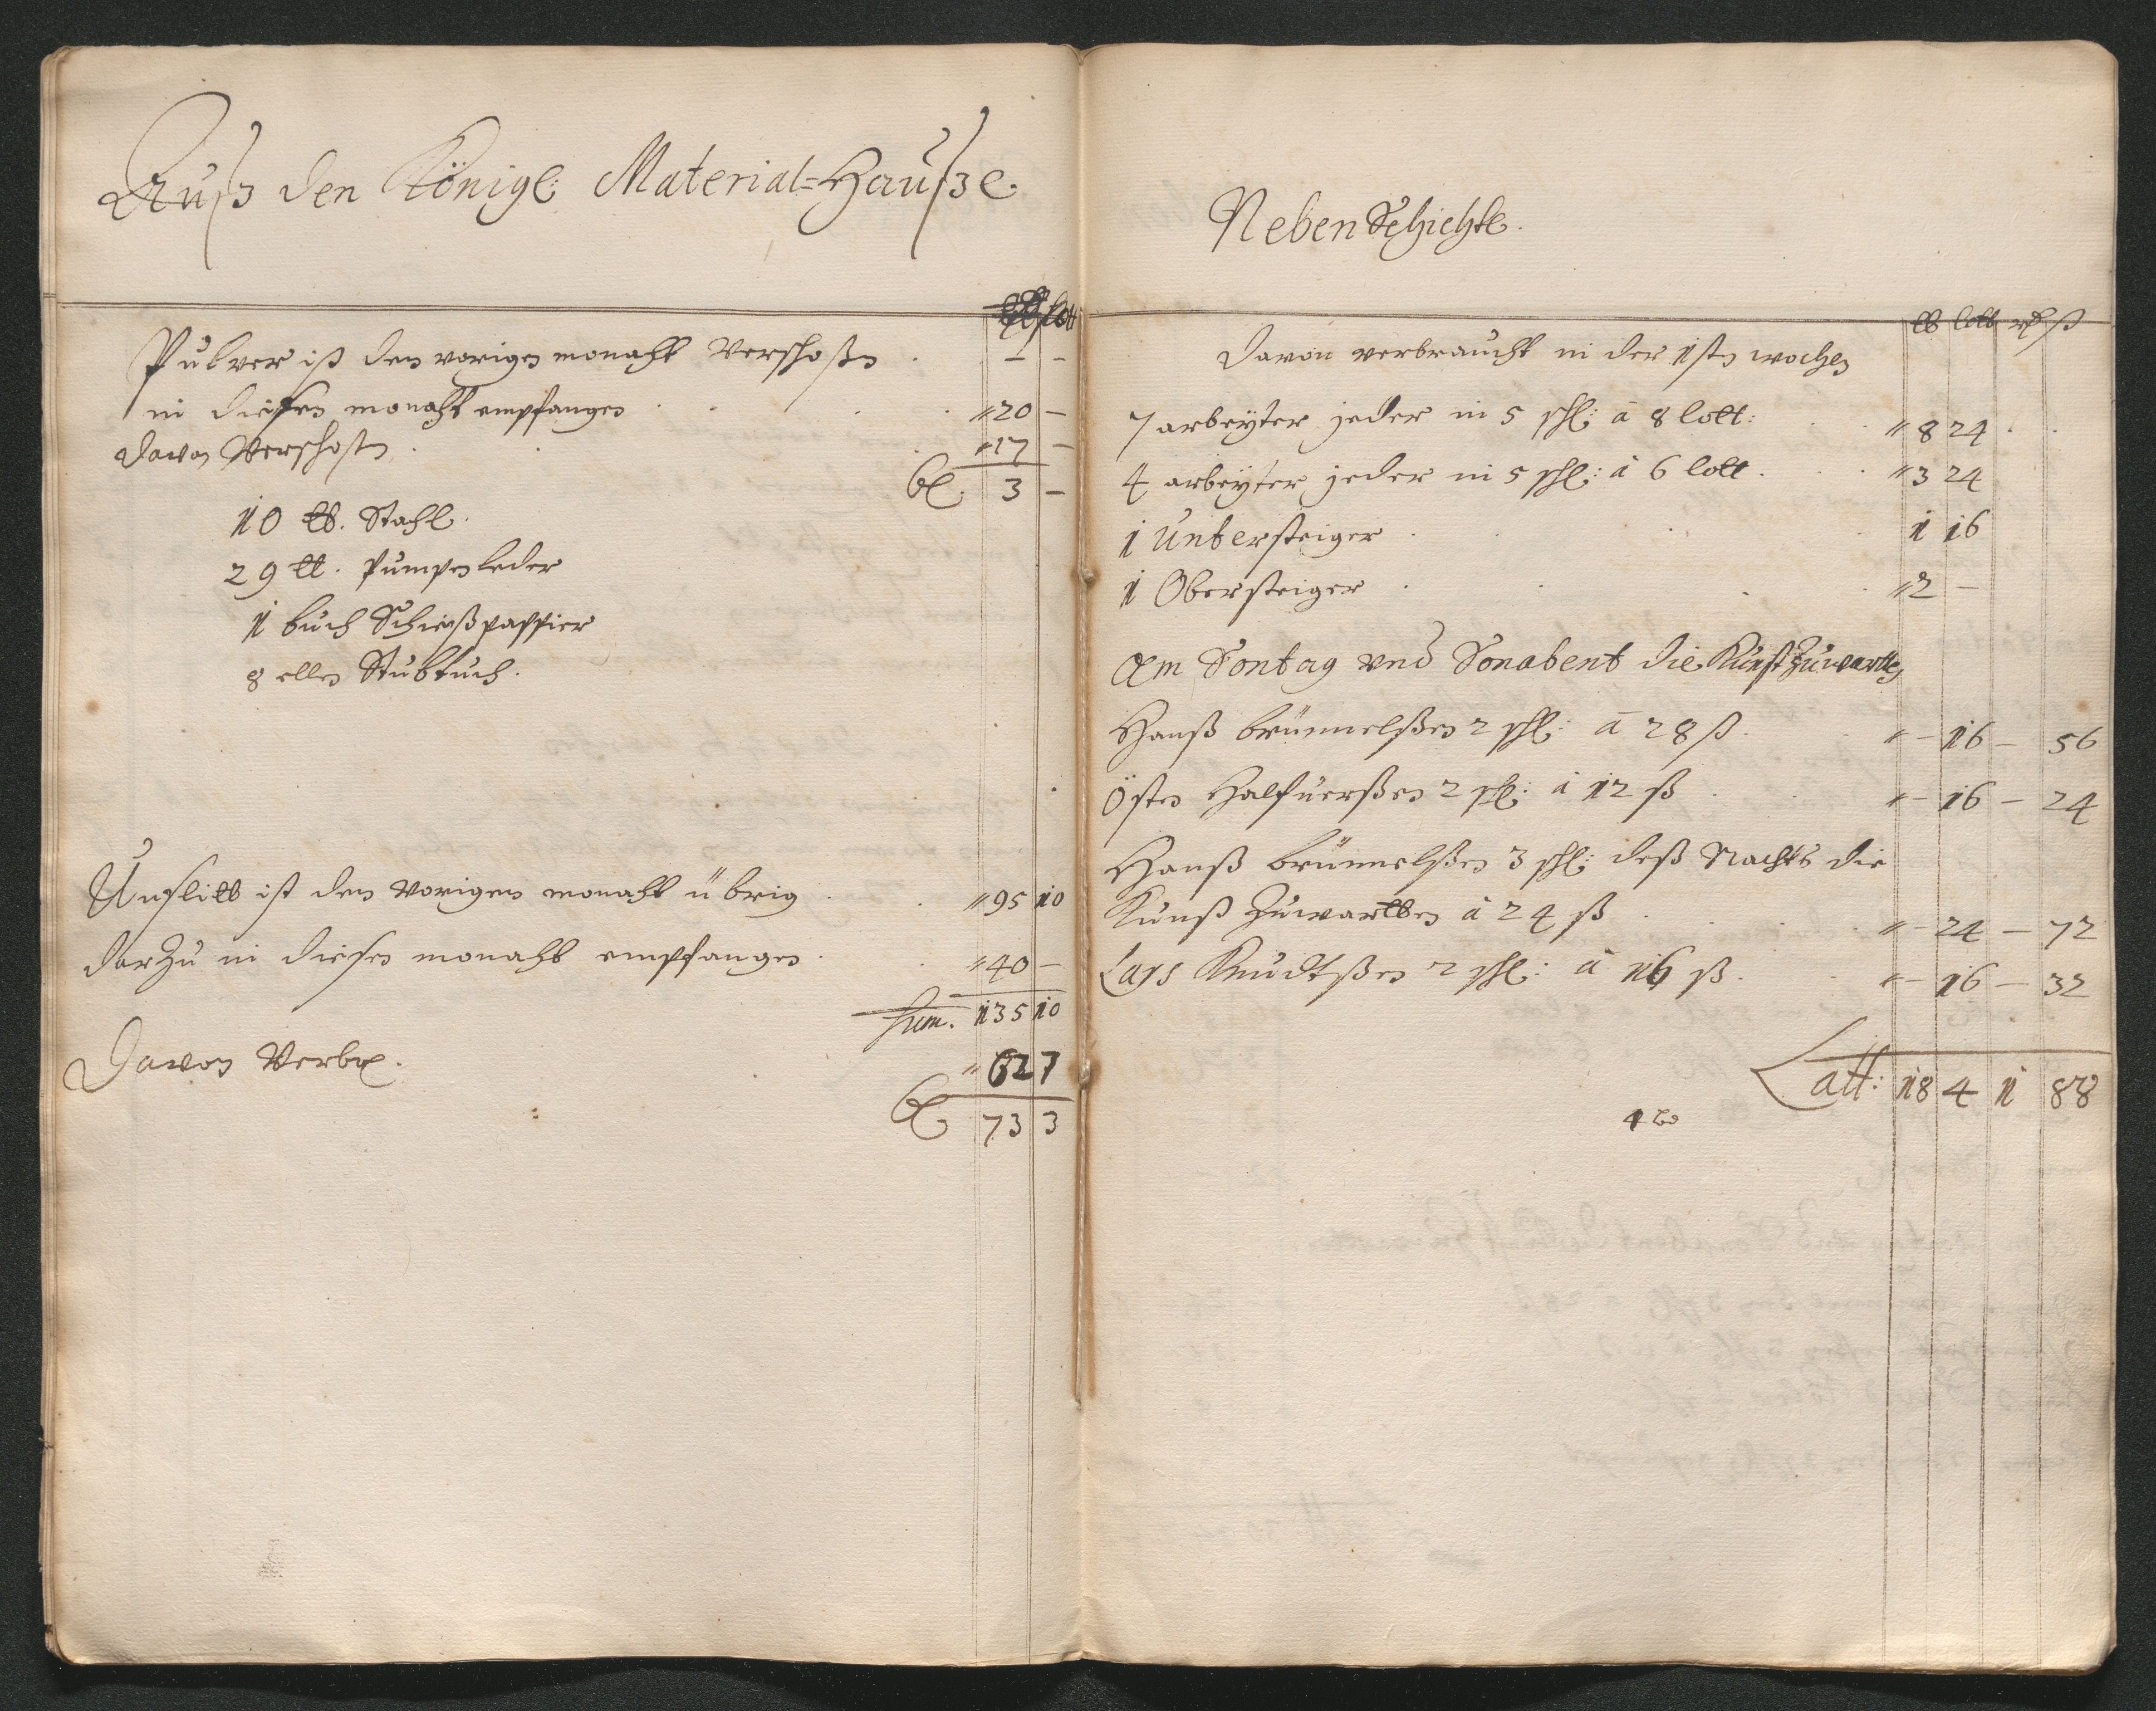 Auß den Königl: Material=Hauße.
Pulver iß den vorigen monaht Verschoßen . – –
in diesen monaht empfangen . . . " 20 –
davon Verschoßen . . . " 17 –
Bl. 3 –
10 tt. Stahl.
29 tt. Pumpen leder
1 buch Schießpappier
8 ellen Stubtuch.
Unslitt ist den Vorigen monaht übrig . . " 95 10
darzu in diesen monaht empfangen . . " 40 –
Sum. 135 10
Davon Verbr. " 62 7
Bl. 73 3
Neben Schichte.
tt lott rd ß
Davon verbraucht in der 1sten wochen
7 arbeyter jeder in 5 schl: à 8 lott: . . " 8 24 . .
4 arbeyter jeder in 5 schl: à 6 lott . . " 3 24
1 Untersteiger . . . 1 16
1 Obersteiger . . . . " 2 –
Am Sontag und Sonabent die Kunst zuwartten
Hanß brünnelßen 2 schl: à 28 ß . . " – 16 – 56
Östen Halfuerßen 2 schl: à 12 ß . . " – 16 – 24
Hanß brünnelßen 3 schl: deß Nachts die
Kunst zuwartten à 24 ß . . . . " – 24 – 72
Lars Knudtßen 2 schl: à 16 ß . . " – 16 – 32
Latt: 18 4 1 88